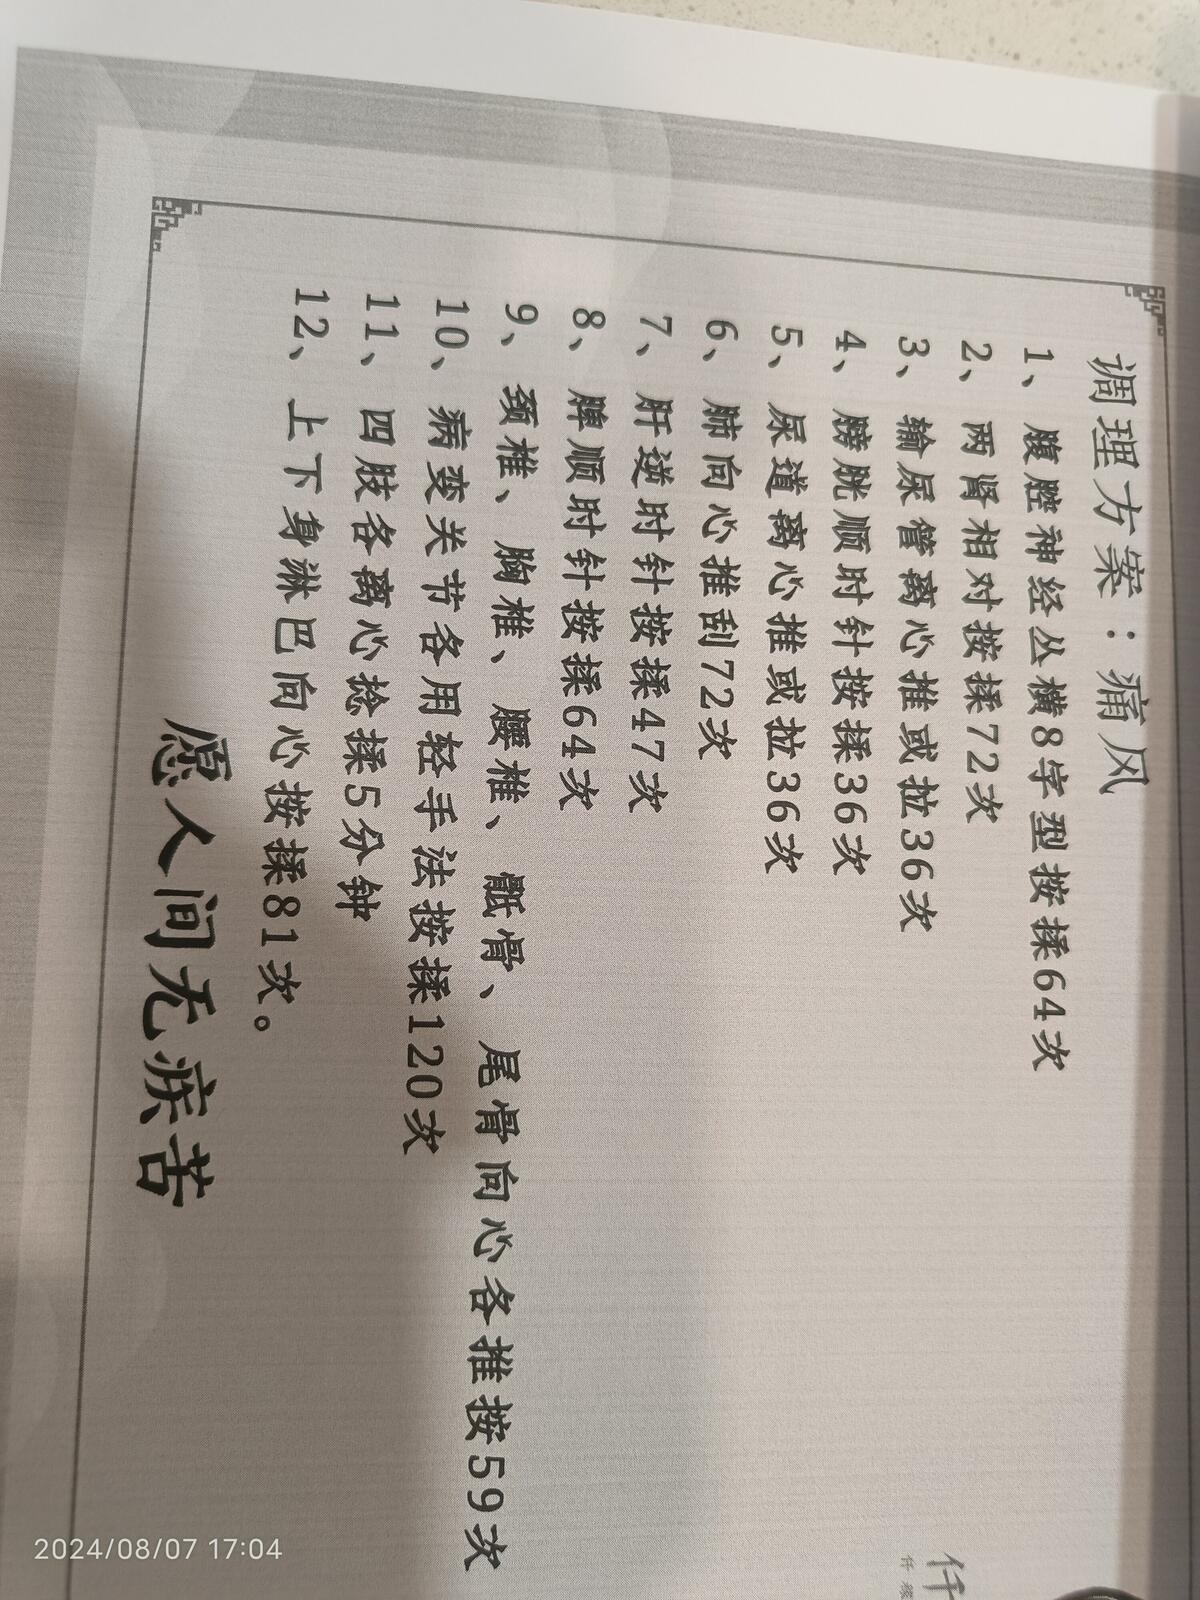 调理方案：痛风
1、腹腔神经丛横8字型按揉64次
2、两肾相对按揉72次
3、输尿管离心推或拉36次
4、膀胱顺时针按揉36次
5、尿道离心推或拉36次
6、肺向心推刮72次
7、肝逆时针按揉47次
8、脾顺时针按揉64次
9、颈椎、胸椎、腰椎、骶骨、尾骨向心各推按59次
10、病变关节各用轻手法按揉120次
11、四肢各离心捻揉5分钟
12、上下身淋巴向心按揉81次。
愿人间无疾苦
仟
2024/08/07 17:04